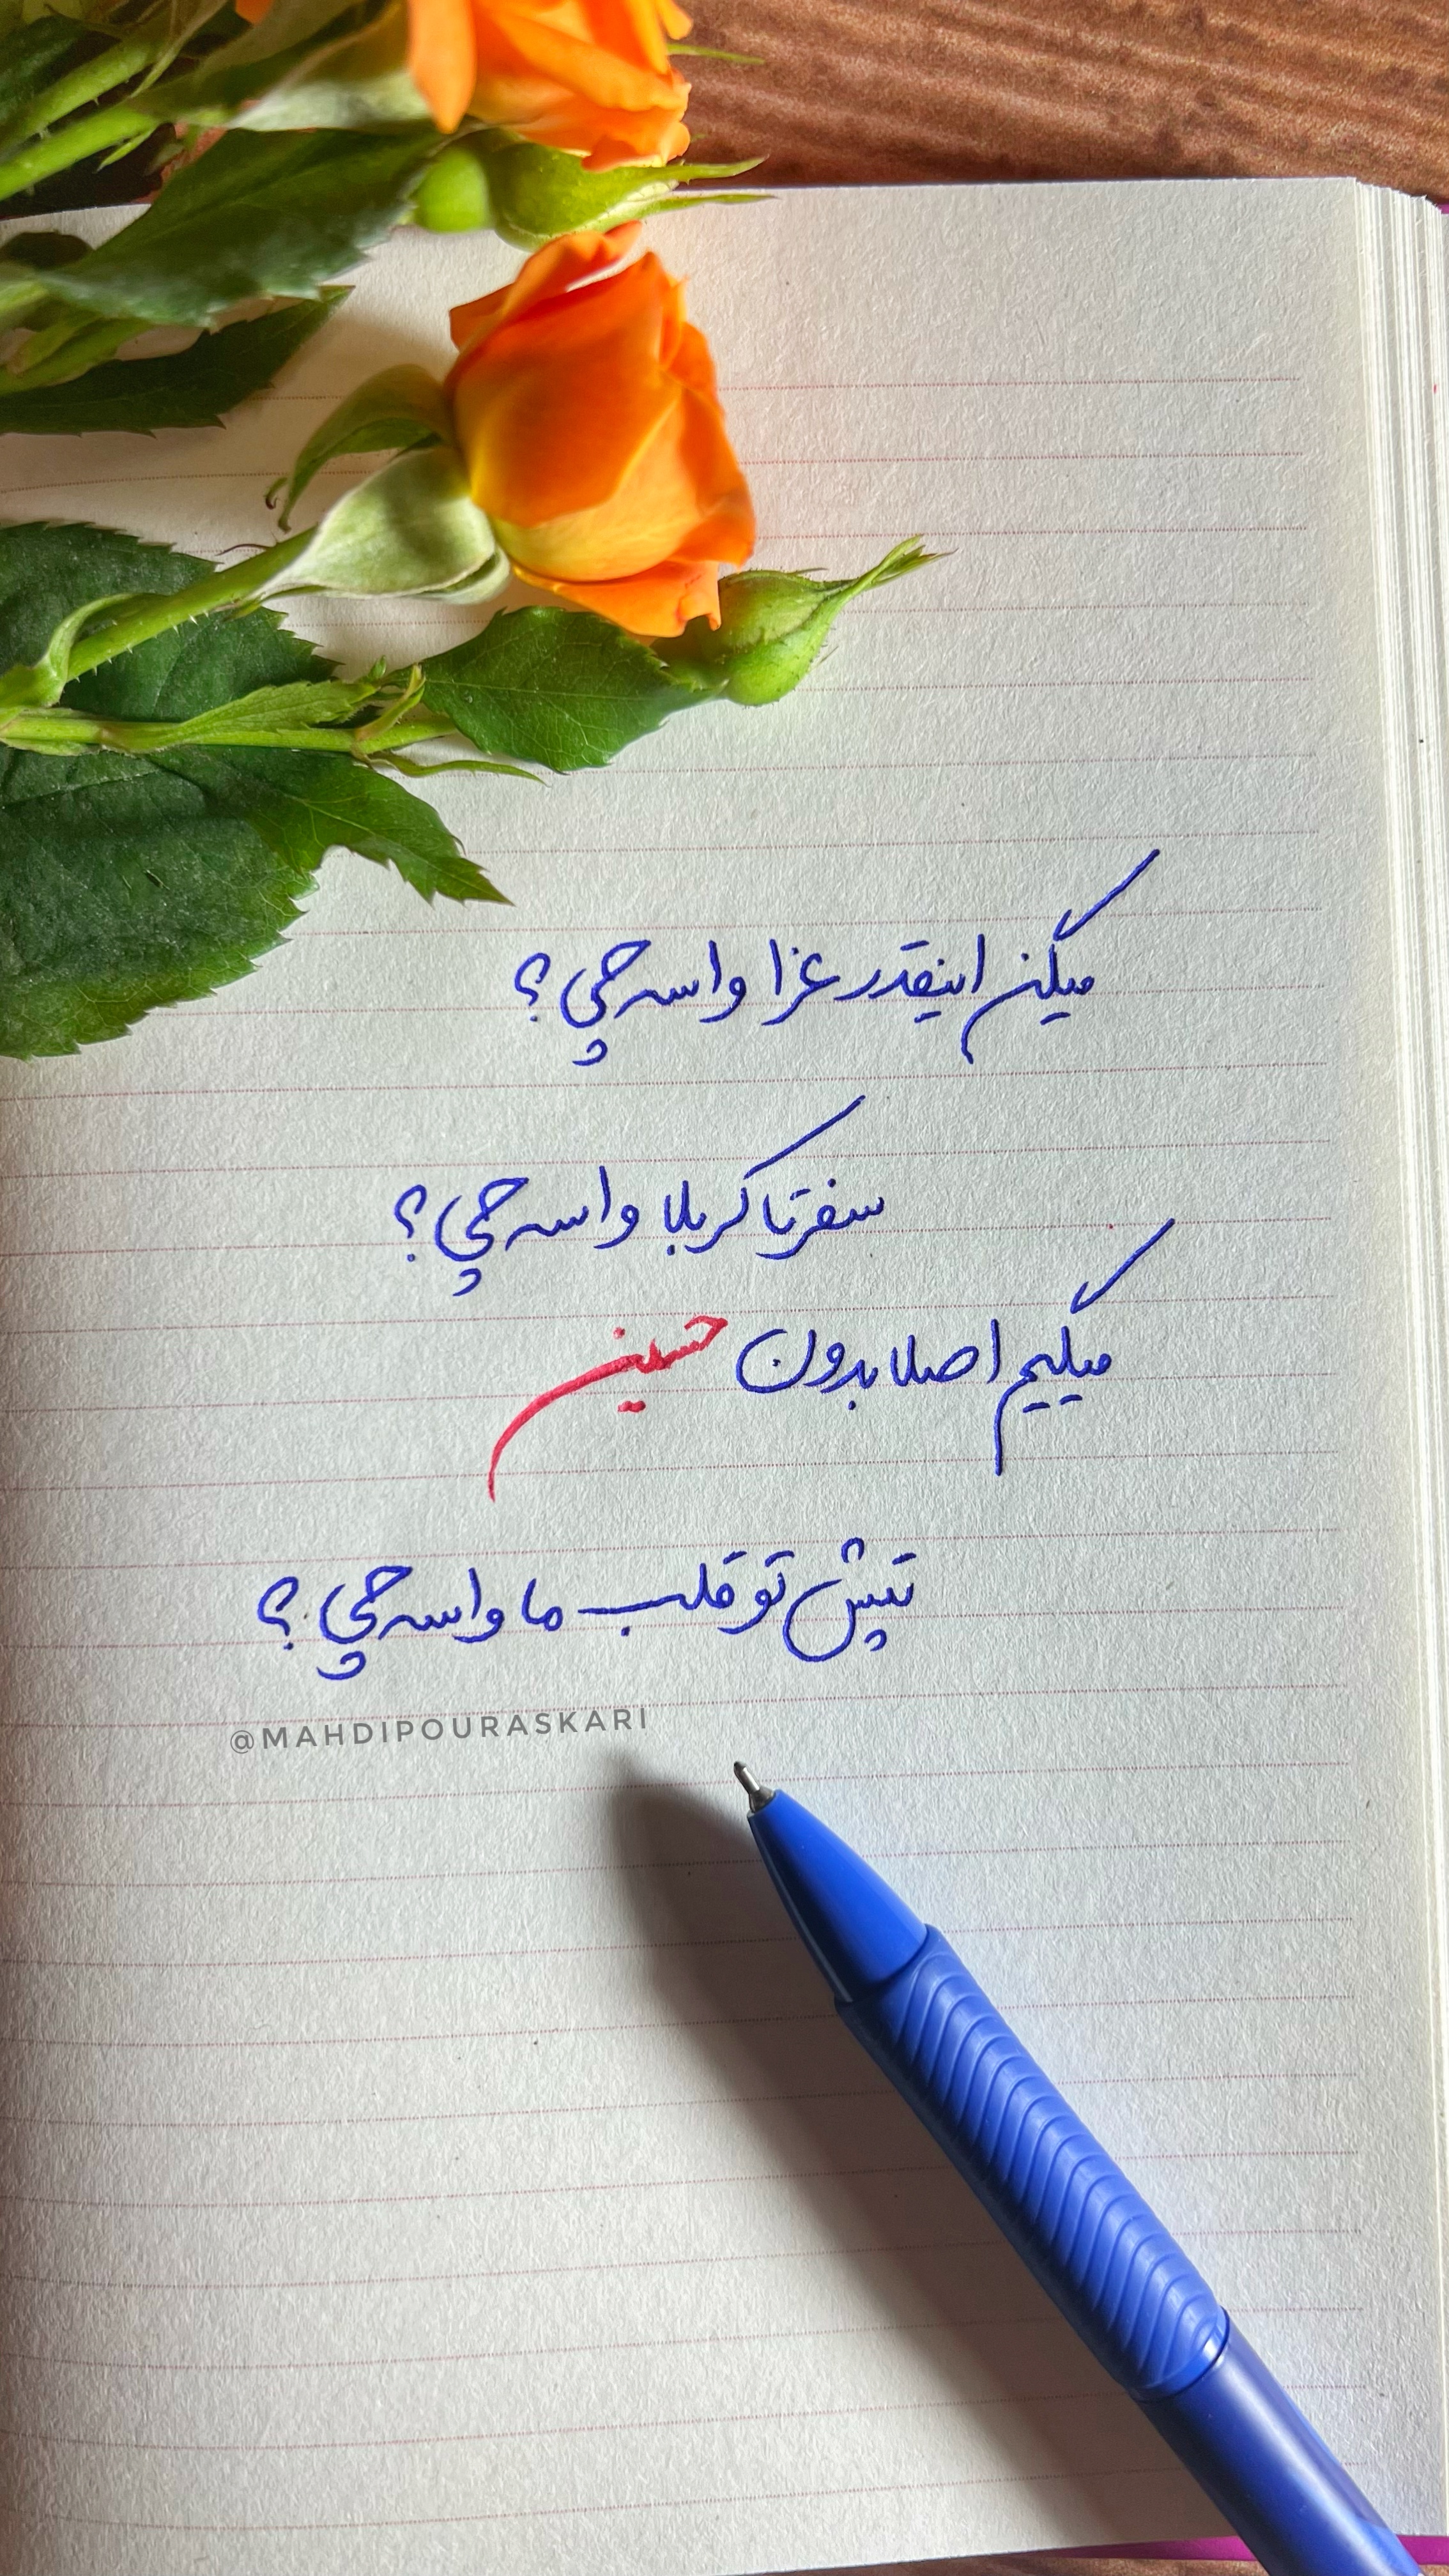 میگن اینقدر عزا واسه چی؟
سفر تا کربلا واسه چی؟
میگیم اصلا بدون حسین
تپش تو قلب ما واسه چی؟
@MAHDIPOURASKARI